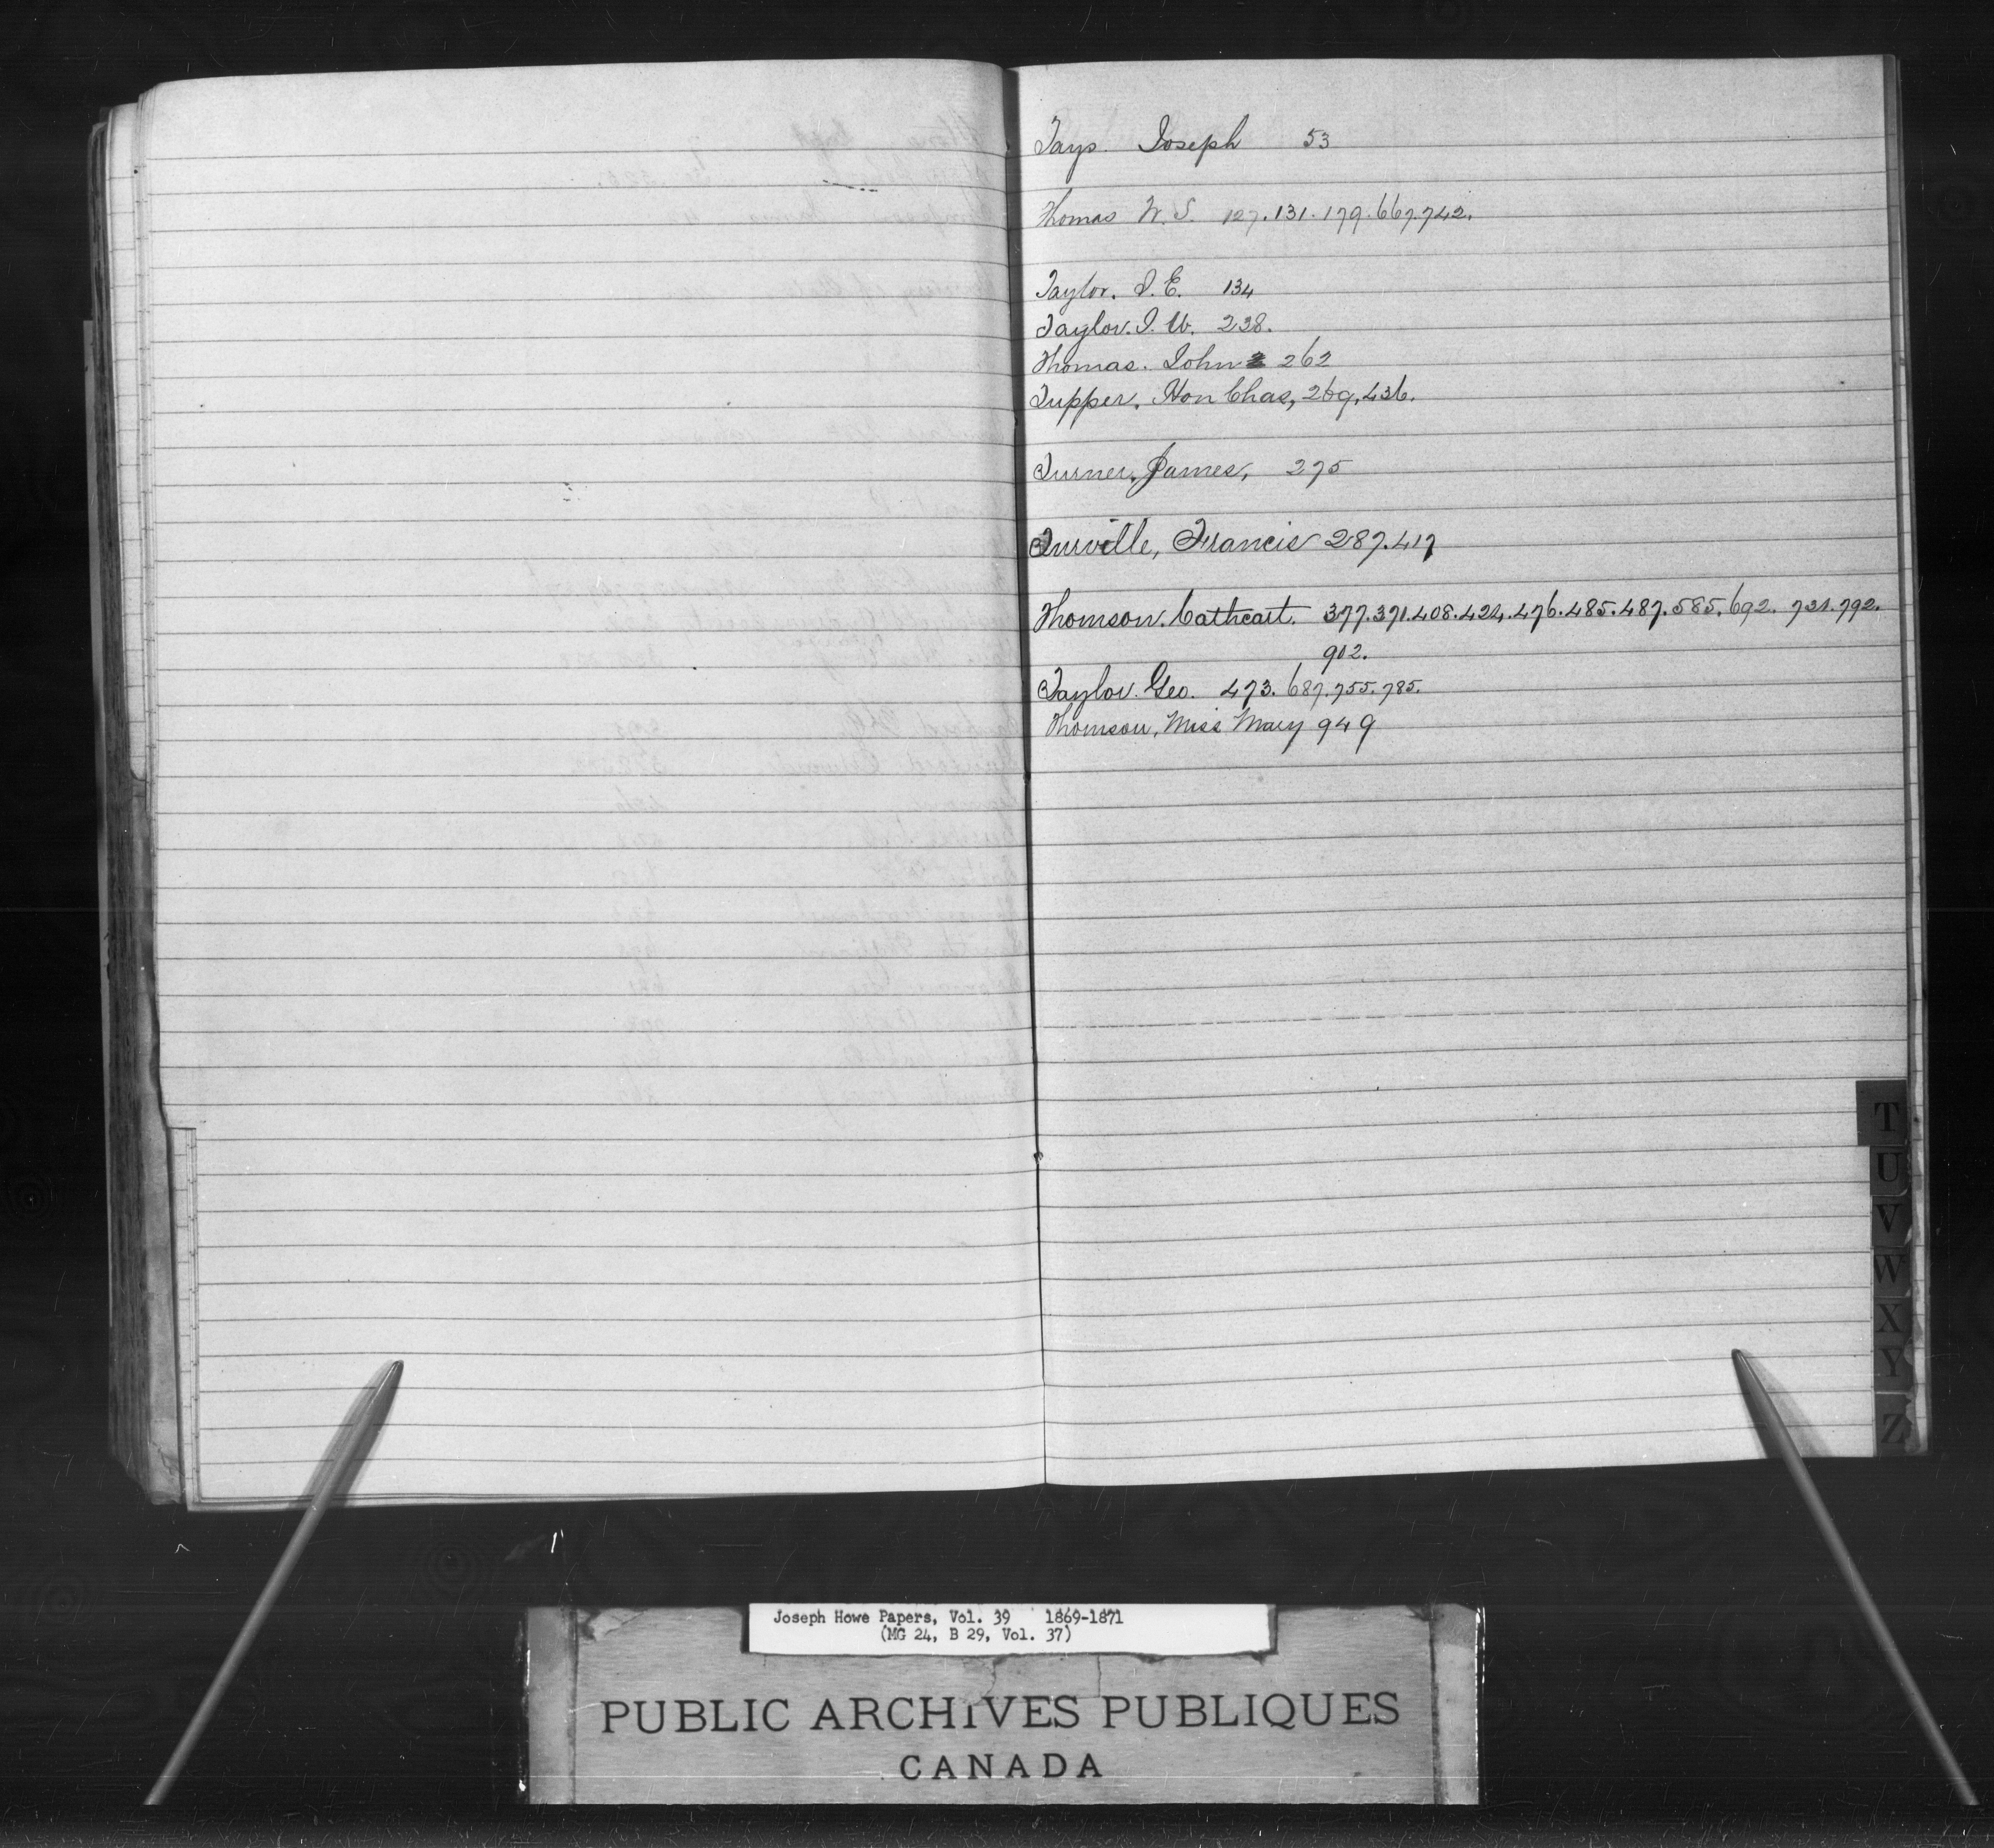 Tays. Joseph 53
Thomas W. S. 127. 131. 179. 667. 742.
Taylor. J. E. 134
Taylor. J. W. 238.
Thomas. John 262
Tupper. Hon Chas, 269, 436.
Turner, James, 275
Turville, Francis 287. 417
Thomson. Cathcart. 377. 371. 408. 424. 476. 485. 487. 585. 692. 731. 792.
902.
Taylor. Geo. 473. 687. 755. 785.
Thomson, Miss Mary 949
T
U
V
W
X
Y
Z
Joseph Howe Papers, Vol. 39 1869-1871
(MG 24, B 29, Vol. 37)
PUBLIC ARCHIVES PUBLIQUES
CANADA